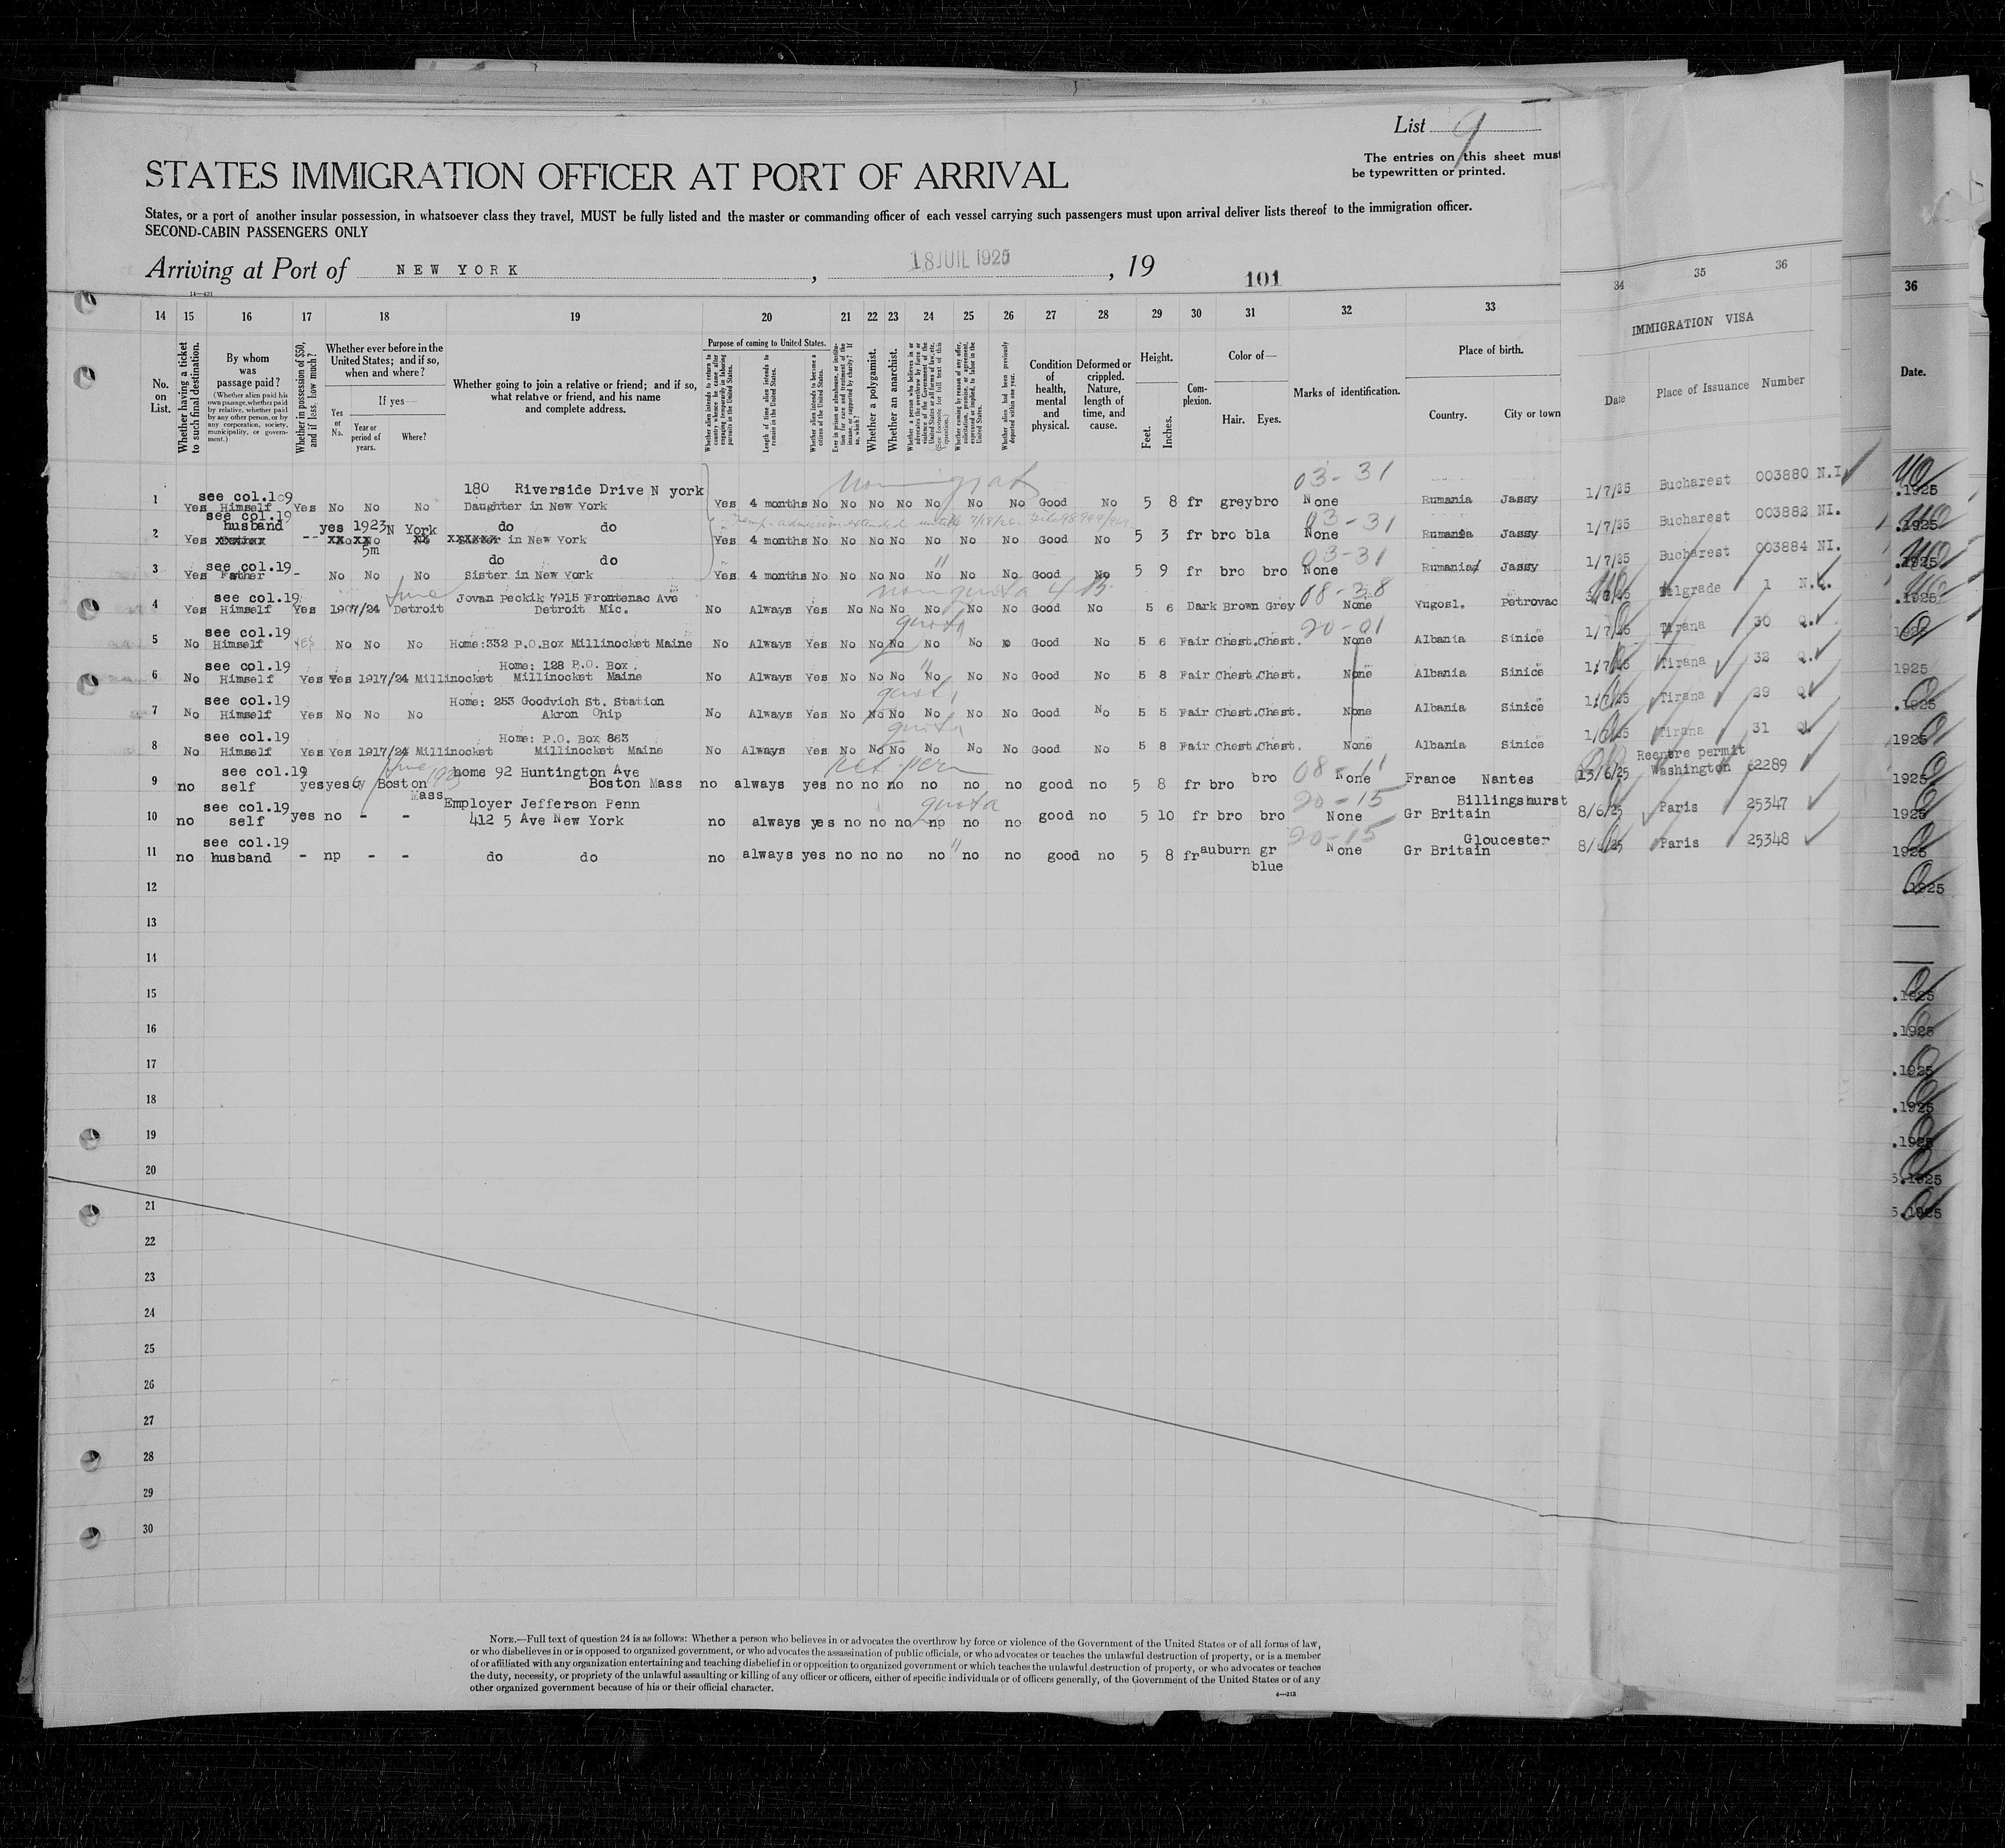 List 9
The entries on this sheet must
be typewritten or printed.
STATES IMMIGRATION OFFICER AT PORT OF ARRIVAL
States, or a port of another insular possession, in whatsoever class they travel, MUST be fully listed and the master or commanding officer of each vessel carrying such passengers must upon arrival deliver lists thereof to the immigration officer.
SECOND-CABIN PASSENGERS ONLY
Arriving at Port of NEW YORK, 18 JUIL 1925, 19
101
14 15 16 17 18 19 20 21 22 23 24 25 26 27 28 29 30 31 32 33 34 35 36 36
IMMIGRATION VISA
No. on List.
Whether having a ticket to such final destination.
By whom was passage paid?
(Whether alien paid his own passage, whether paid by relative, whether paid by any other person, or by any corporation, society, municipality, or government.)
Whether in possession of $50, and if less, how much?
Whether ever before in the United States; and if so, when and where?
If yes—
Yes or No.
Year or period of years.
Where?
Whether going to join a relative or friend; and if so, what relative or friend, and his name and complete address.
Purpose of coming to United States.
Whether alien intends to return to country whence he came after engaging temporarily in laboring pursuits in the United States.
Length of time alien intends to remain in the United States.
Whether alien intends to become a citizen of the United States.
Whether a polygamist.
Whether an anarchist.
Condition of health, mental and physical.
Deformed or crippled. Nature, length of time, and cause.
Height.
Feet. Inches.
Complexion.
Color of—
Hair. Eyes.
Marks of identification.
Place of birth.
Country. City or town
Date Place of Issuance Number
Date.
180 Riverside Drive N york
1 Yes see col.19 Himself Yes No No No Daughter in New York Yes 4 months No No No No No No No Good No 5 8 fr grey bro None Rumania Jassy 1/7/25 Bucharest 003880 N.I.
03-31
2 Yes see col.19 husband -- yes 1923 N York do do in New York Yes 4 months No No No No No No No Good No 5 3 fr bro bla None Rumania Jassy 1/7/25 Bucharest 003882 NI.
5m
03-31
3 Yes see col.19 Father - No No No do do Sister in New York Yes 4 months No No No No No No No Good No 5 9 fr bro bro None Rumania Jassy 1/7/25 Bucharest 003884 NI.
03-31
4 Yes see col.19 Himself Yes 1907/24 Detroit Jovan Peckik 7915 Frontenac Ave Detroit Mic. No Always Yes No No No No No No Good No 5 6 Dark Brown Grey None Yugosl. Petrovac Belgrade 1 N.Q.
June
non quota 4 B
08-38
5 No see col.19 Himself yes No No No Home:332 P.O.Box Millinocket Maine No Always Yes No No No No No Good No 5 6 Fair Chest. Chest. None Albania Sinice 1/7/25 Tirana 30 Q.
quota
20-01
6 No see col.19 Himself Yes Yes 1917/24 Millinocket Home: 128 P.O. Box Millinocket Maine No Always Yes No No No No No No Good No 5 8 Fair Chest. Chest. None Albania Sinice 1/7/25 Tirana 32 Q.
7 No see col.19 Himself Yes No No No Home: 253 Goodvich St. Station Akron Ohip No Always Yes No No No No No No Good No 5 5 Fair Chest. Chest. None Albania Sinice 1/7/25 Tirana 29 Q
quota
8 No see col.19 Himself Yes Yes 1917/24 Millinocket Home: P.O. Box 863 Millinocket Maine No Always Yes No No No No No No Good No 5 8 Fair Chest. Chest. None Albania Sinice Tirana 31 Q
quota
9 no see col.19 self yes yes Boston Mass home 92 Huntington Ave Boston Mass no always yes no no no no no no good no 5 8 fr bro bro None France Nantes 13/6/25 Reentre permit Washington 62289
June
ret perm
08-11
10 no see col.19 self yes no - - Employer Jefferson Penn 412 5 Ave New York no always yes no no no np no no good no 5 10 fr bro bro None Gr Britain Billingshurst 8/6/25 Paris 25347
quota
20-15
11 no see col.19 husband - np - - do do no always yes no no no no no no good no 5 8 fr auburn gr blue None Gr Britain Gloucester 8/6/25 Paris 25348
20-15
12
13
14
15
16
17
18
19
20
21
22
23
24
25
26
27
28
29
30
NOTE.—Full text of question 24 is as follows: Whether a person who believes in or advocates the overthrow by force or violence of the Government of the United States or of all forms of law,
or who disbelieves in or is opposed to organized government, or who advocates the assassination of public officials, or who advocates or teaches the unlawful destruction of property, or is a member
of or affiliated with any organization entertaining and teaching disbelief in or opposition to organized government or which teaches the unlawful destruction of property, or who advocates or teaches
the duty, necessity, or propriety of the unlawful assaulting or killing of any officer or officers, either of specific individuals or of officers generally, of the Government of the United States or of any
other organized government because of his or their official character.